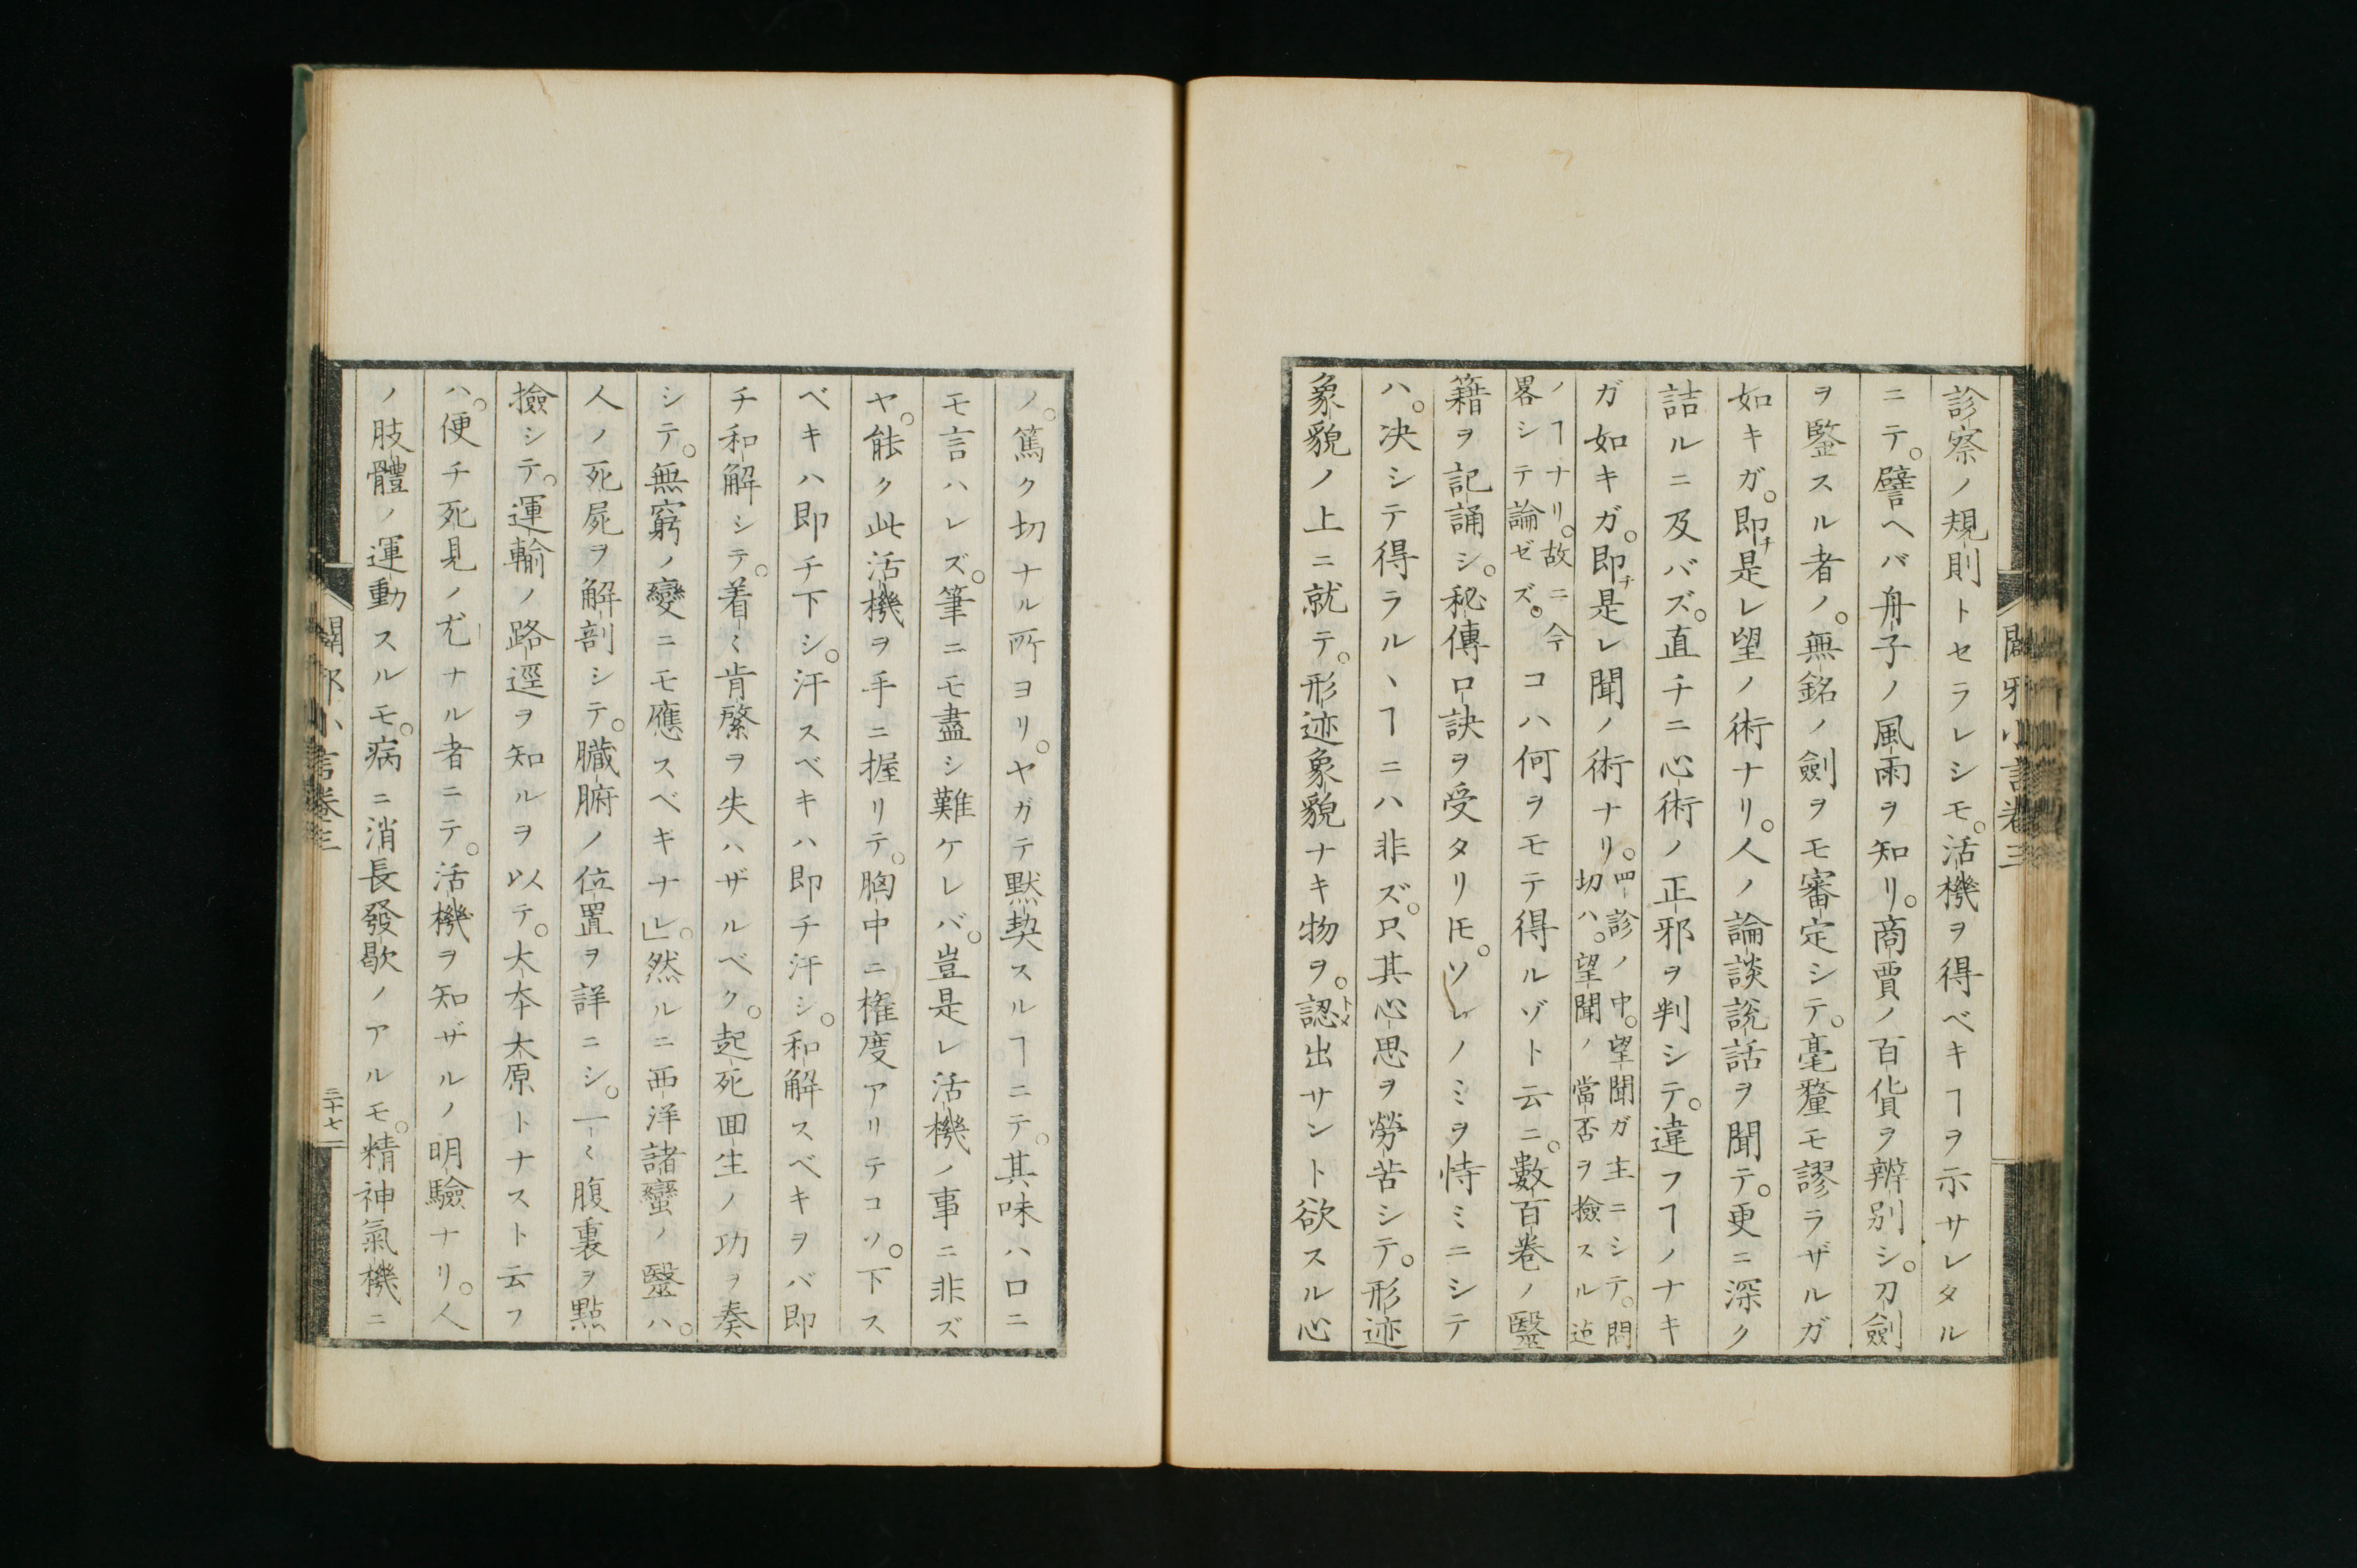 診察ノ規則トセラレシモ。活機ヲ得ベキヿヲ示サレタル
ニテ。譬ヘバ舟子ノ風雨ヲ知リ。商賈ノ百貨ヲ辨別シ。刀劍
ヲ鑒スル者ノ。無銘ノ劍ヲモ審定シテ。毫釐モ謬ラザルガ
如キガ。即チ是レ望ノ術ナリ。人ノ論談説話ヲ聞テ。更ニ深ク
詰ルニ及バズ。直チニ心術ノ正邪ヲ判シテ。違フヿノナキ
ガ如キガ。即チ是レ聞ノ術ナリ。四診ノ中。望聞ガ主ニシテ。問
切ハ。望聞ノ當否ヲ撿スル迠
ノヿナリ。故ニ今
畧シテ論ゼズ。コハ何ヲモテ得ルゾト云ニ。數百巻ノ醫
籍ヲ記誦シ。秘傳口訣ヲ受タリ𪜈。ソレノミヲ恃ミニシテ
ハ。决シテ得ラルヽヿニハ非ズ。只其心思ヲ勞苦シテ。形迹
象貌ノ上ニ就テ。形迹象貌ナキ物ヲ。認トメ出サント欲スル心
闢邪小言卷三
ノ。篤ク切ナル所ヨリ。ヤガテ黙契スルヿニテ。其味ハ口ニ
モ言ハレズ。筆ニモ盡シ難ケレバ。豈是レ活機ノ事ニ非ズ
ヤ。能ク此活機ヲ手ニ握リテ。胸中ニ権度アリテコソ。下ス
ベキハ即チ下シ。汗スベキハ即チ汗シ。和解スベキヲバ即
チ和解シテ。着〻肯綮ヲ失ハザルベク。起死囬生ノ功ヲ奏
シテ。無窮ノ變ニモ應スベキナレ」。然ルニ西洋諸蠻ノ醫ハ。
人ノ死屍ヲ解剖シテ。臓腑ノ位置ヲ詳ニシ。一〻腹裏ヲ點
撿シテ。運輸ノ路逕ヲ知ルヲ以テ。大本大原トナスト云フ
ハ。便チ死見ノ尤ナル者ニテ。活機ヲ知ザルノ明驗ナリ。人
ノ肢體ノ運動スルモ。病ニ消長發歇ノアルモ。精神氣機ニ
闢邪小言卷三
三十七